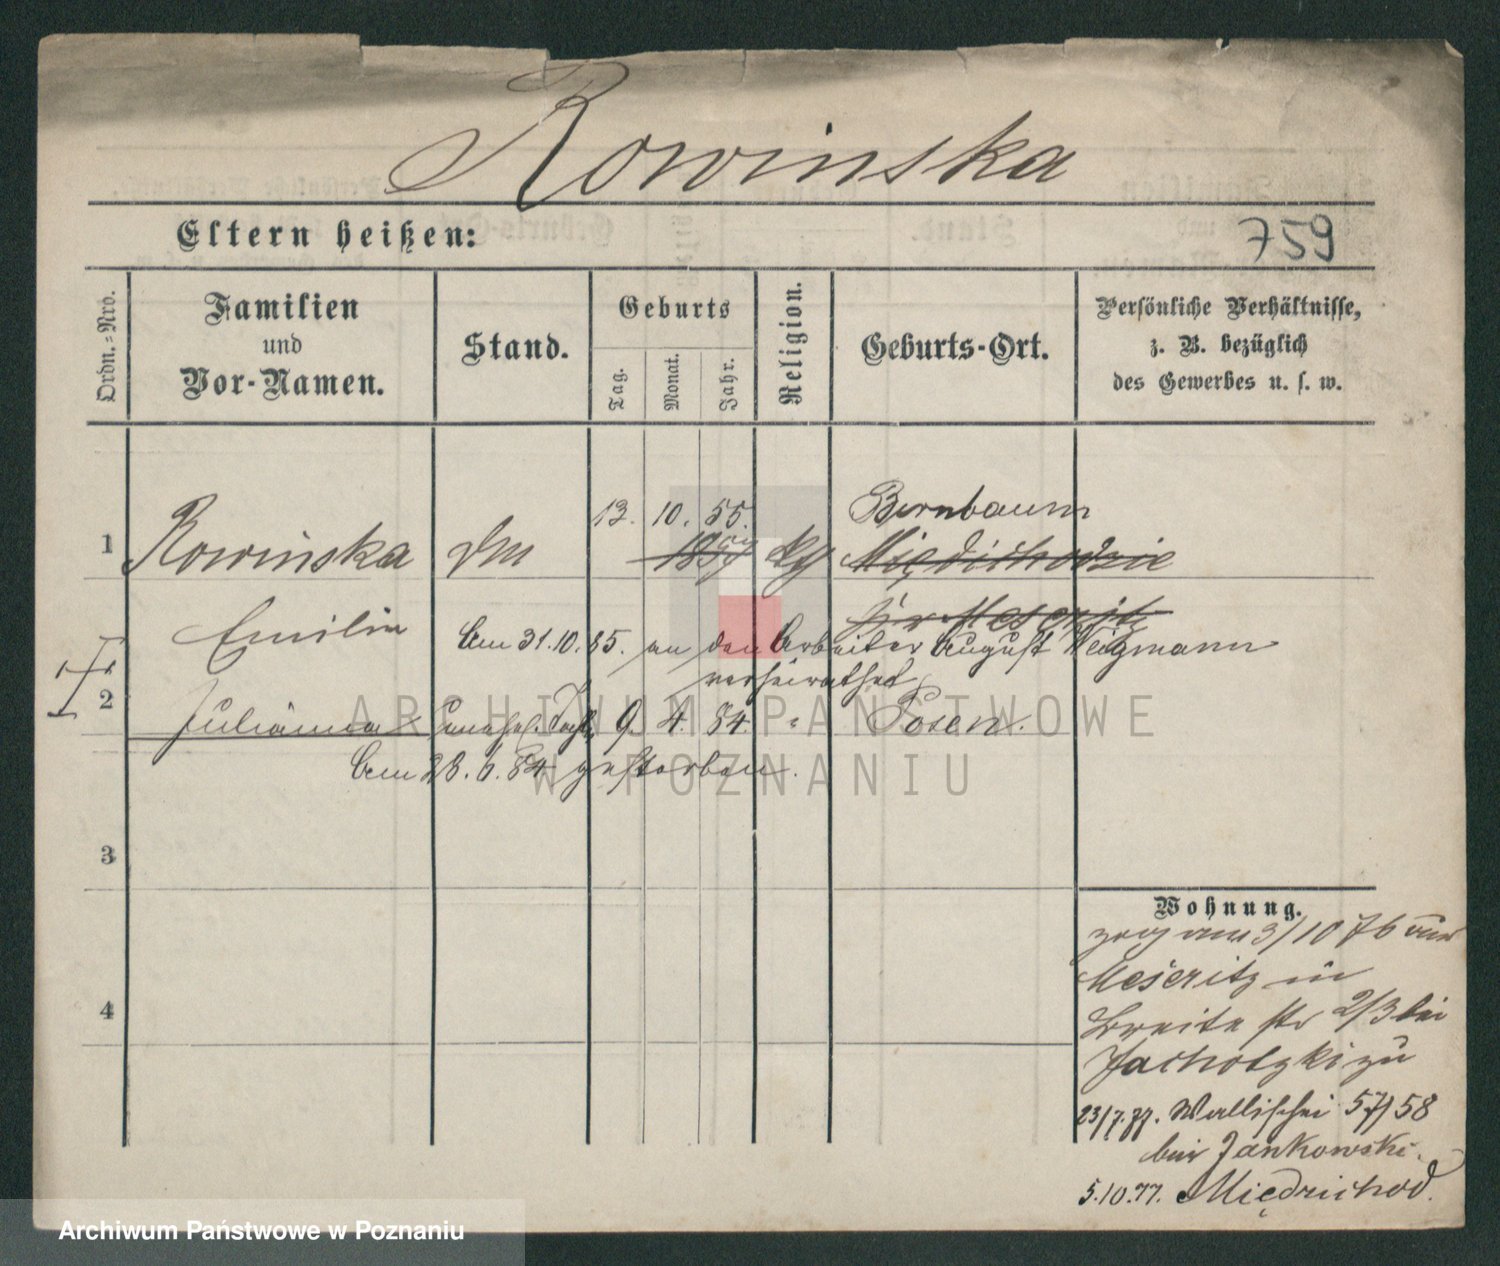 Rowinska
Eltern heißen:
759
Ordn.-Nro.
Familien
und
Vor-Namen.
Stand.
Geburts
Tag.
Monat.
Jahr.
Religion.
Geburts-Ort.
Persönliche Verhältnisse,
z. B. bezüglich
des Gewerbes u. s. w.
13. 10. 55. Birnbaum
1 Rowinska
Emilie
Am 31.10.85. an den Arbeiter August Weigmann
verheirathet
2 Julianna Tocht. 9. 4. 84. " Posen.
Am 28. 6. 84 gestorben.
3
4
Wohnung.
zog am 3/10 76 aus
Meseritz in
Breite str 2/3 bei
zu
23/7.77. Wallischei 57/58
bei Jankowski.
5.10.77. Międzichod.
ARCHIWUM PAŃSTWOWE
W POZNANIU
Archiwum Państwowe w Poznaniu